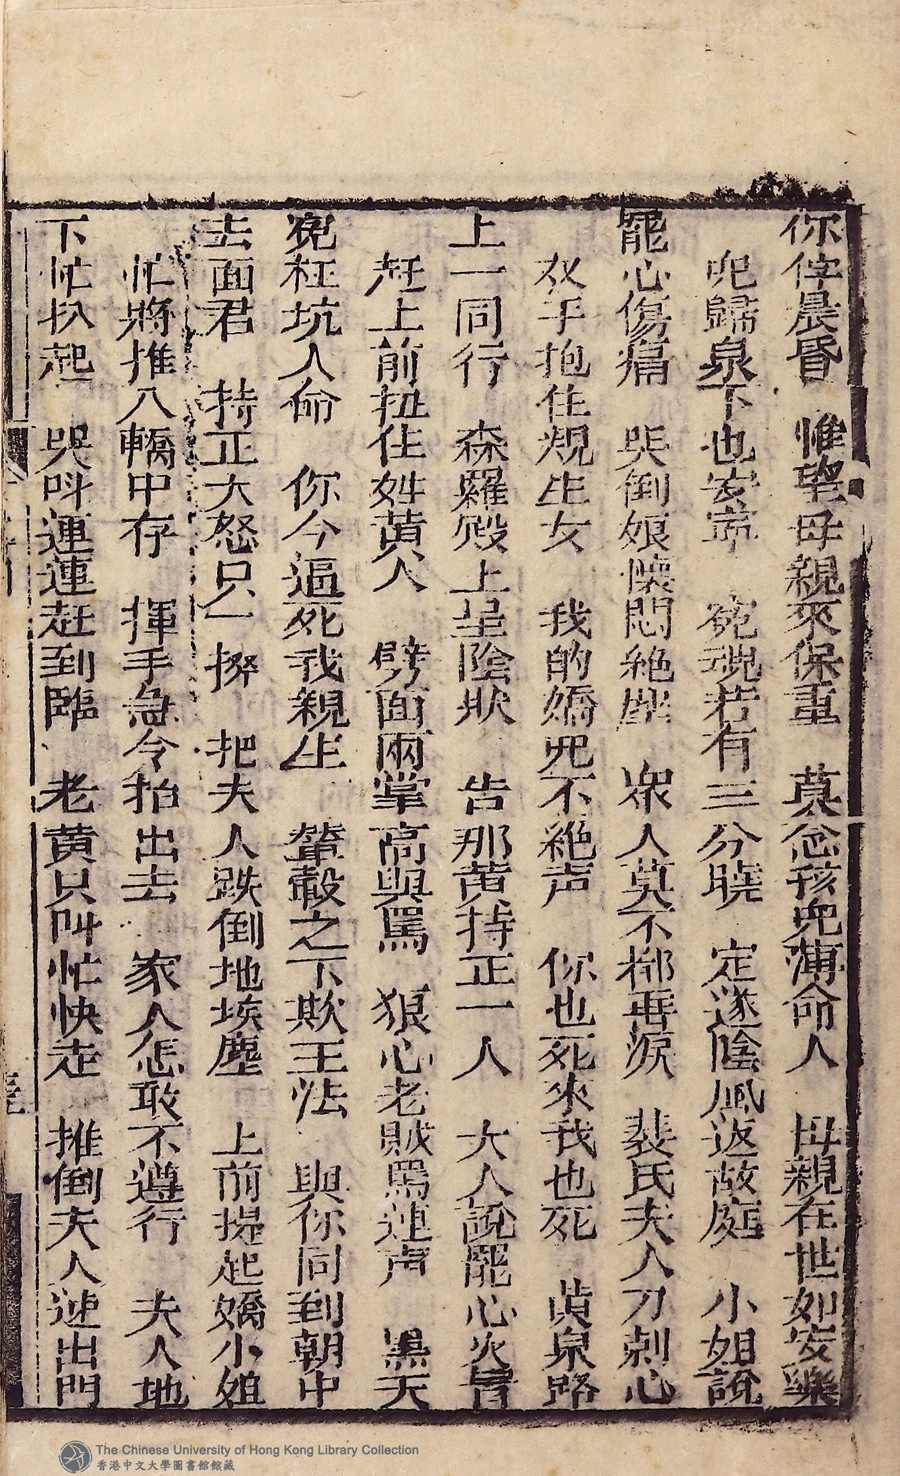 你侍晨昏　惟望母親來保重　莫念孩兒薄命人　母親在世如安樂
兒歸泉下也安寧　冤魂若有三分曉　定逐陰風返故庭　小姐說
罷心傷痛　哭倒娘懷悶絕塵　眾人莫不揶垂淚　裴氏夫人刀刺心
双手抱住規生女　我的嬌兒不絕声　你也死來我也死　黃泉路
上一同行　森羅殿上呈陰狀　告那黃持正一人　大人說罷心火冒
赶上前扭住姓黃人　劈面兩掌高與罵　狠心老賊罵連声　黑天
冤枉坑人命　你今逼死我親生　輦轂之下欺王法　與你同到朝中
去面君　持正大怒只一掇　把夫人跌倒地埃塵　上前提起嬌小姐
忙將推八轎中存　揮手急令抬出去　家人怎敢不遵行　夫人地
下忙扒起　哭呌連連赶到臨　老黃只叫忙快走　推倒夫人逩出門
The Chinese University of Hong Kong Library Collection
香港中文大學圖書館館藏